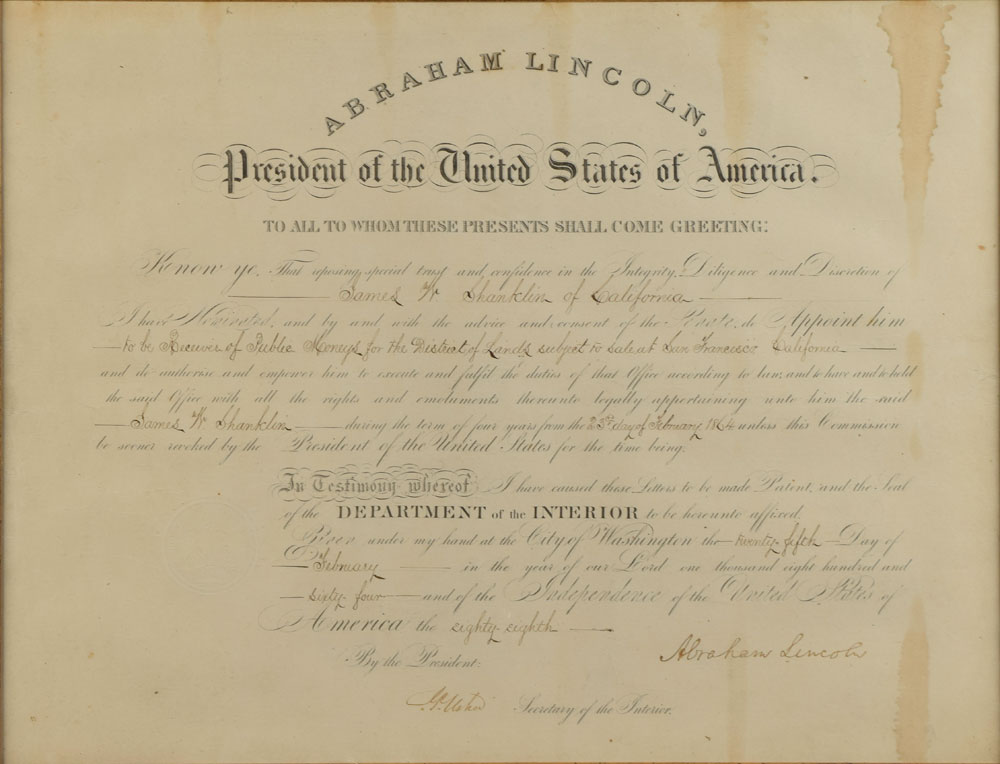 ABRAHAM LINCOLN,
President of the United States of America.
TO ALL TO WHOM THESE PRESENTS SHALL COME GREETING:
Know ye, That reposing special trust and confidence in the Integrity, Diligence and Discretion of
James W Shanklin of California
I have Nominated, and by and with the advice and consent of the Senate, do Appoint him
to be Receiver of Public Moneys for the District of Lands subject to sale at San Francisco California
and do authorise and empower him to execute and fulfil the duties of that Office according to law; and to have and to hold
the said Office with all the rights and emoluments thereunto legally appertaining unto him the said
James W Shanklin during the term of four years from the 25th day of February 1864 unless this Commission
be sooner revoked by the President of the United States for the time being.
In Testimony whereof I have caused these Letters to be made Patent, and the Seal
of the DEPARTMENT of the INTERIOR to be hereunto affixed.
Given under my hand at the City of Washington the twenty fifth Day of
February in the year of our Lord one thousand eight hundred and
sixty four and of the Independence of the United States of
America the eighty eighth
By the President:
Abraham Lincoln
J.P. Usher Secretary of the Interior.